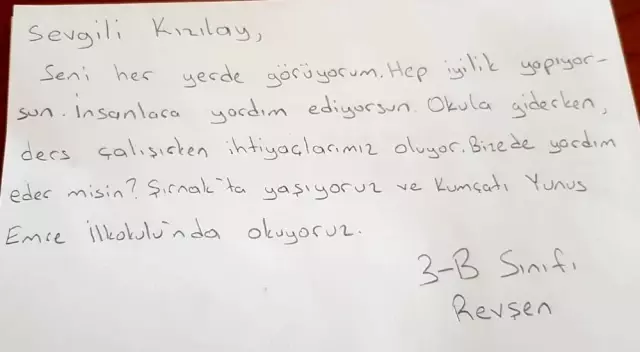 Sevgili Kızılay,
Seni her yerde görüyorum. Hep iyilik yapıyor-
sun. İnsanlara yardım ediyorsun. Okula giderken,
ders çalışırken ihtiyaçlarımız oluyor. Bizede yardım
eder misin? Şırnak'ta yaşıyoruz ve Kumçatı Yunus
Emre İlkokulu'nda okuyoruz.
3-B Sınıfı
Revşen